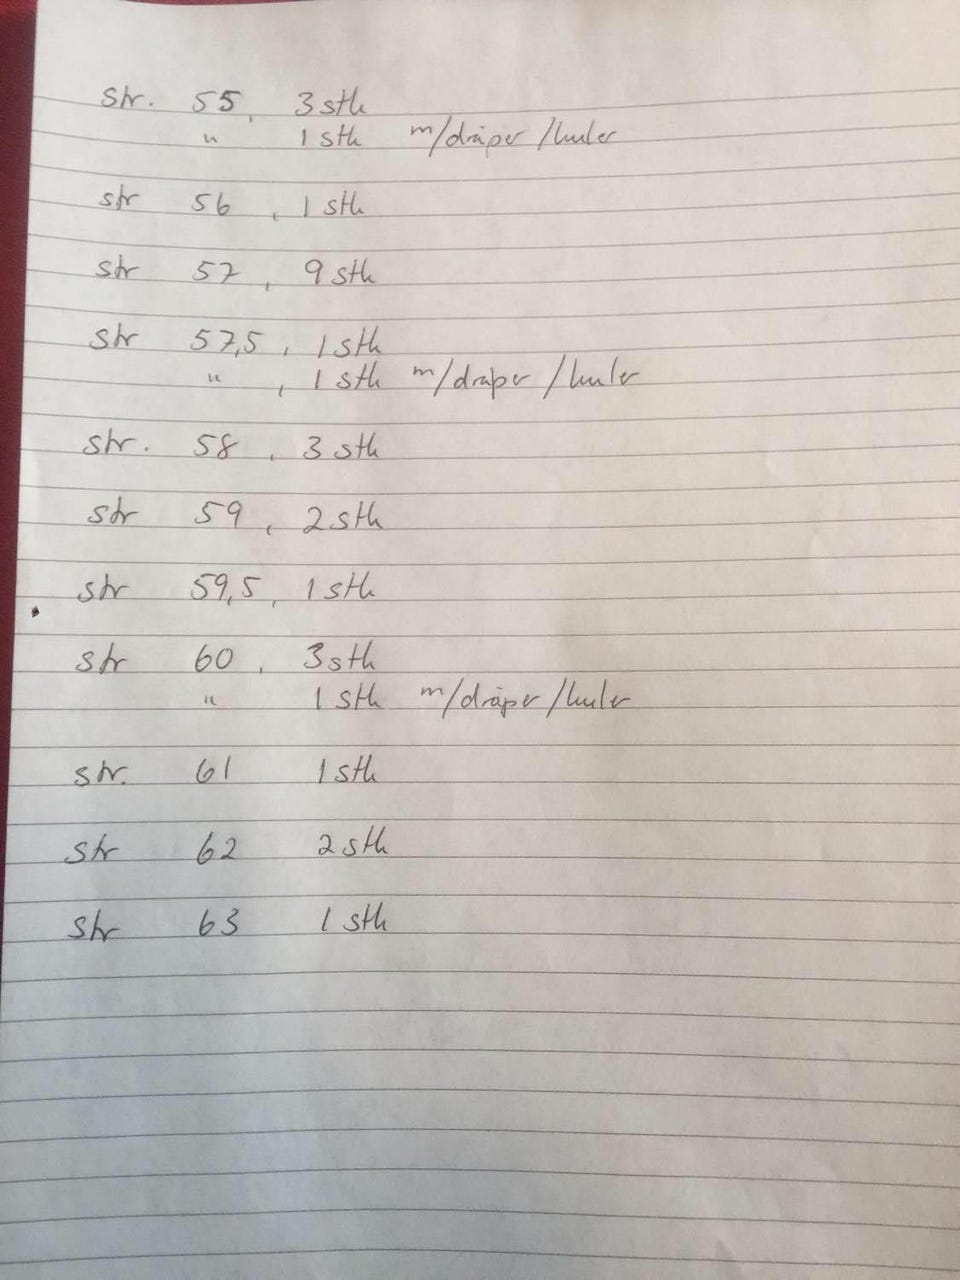 str. 55, 3 stk
" 1 stk m/dråper/huler
str 56, 1 stk
str 57, 9 stk
str 57,5, 1 stk
", 1 stk m/dråper/huler
str. 58, 3 stk
str 59, 2 stk
str 59,5, 1 stk
str 60, 3 stk
" 1 stk m/dråper/huler
str. 61 1 stk
str 62 2 stk
str 63 1 stk